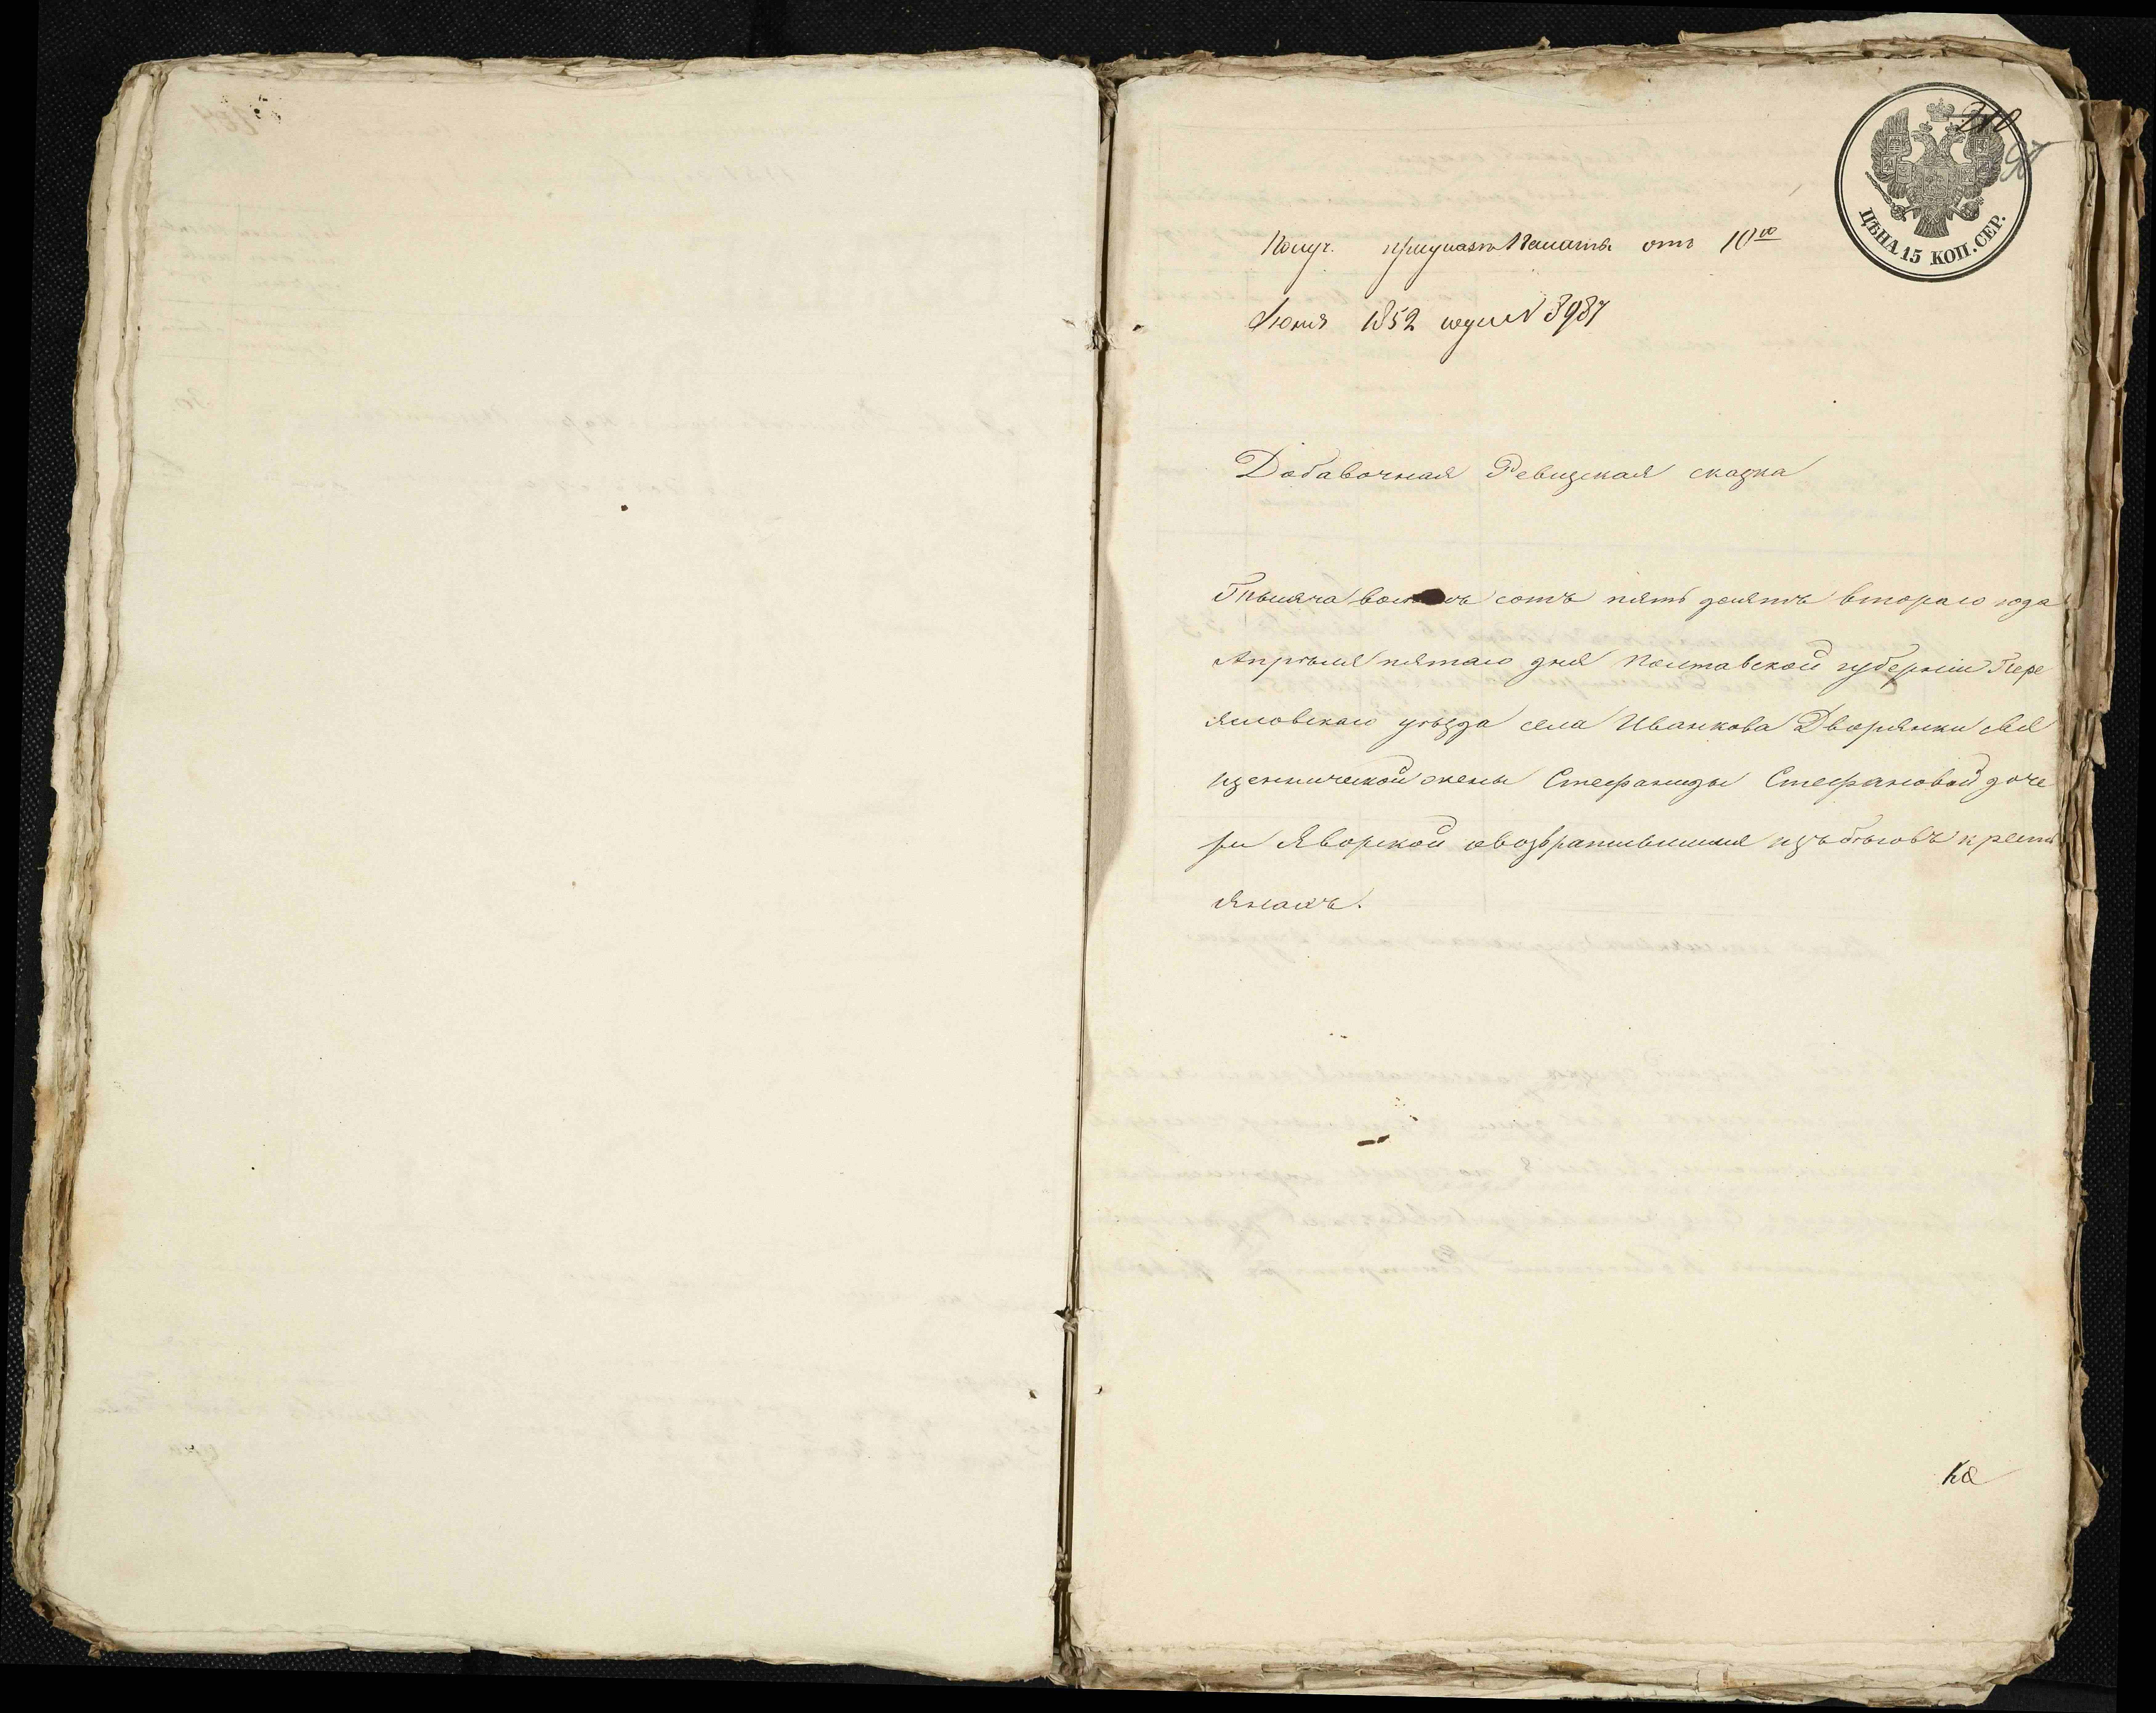 210
ЦѢНА 15 КОП. СЕР.
Получ. при указѣ Палаты отъ 10го
Іюня 1852 года N 8987
Добавочная Ревизская сказка
Тысяча восемь сотъ пять десятъ втораго года
Апрѣля пятаго дня Полтавской губерніи Пере
яславскаго уѣзда села Иванкова Дворянки Свя
щеннической жены Стефаниды Стефановой доче
ри Яворской овозвратившихся изъ бѣговъ кресть
янахъ.